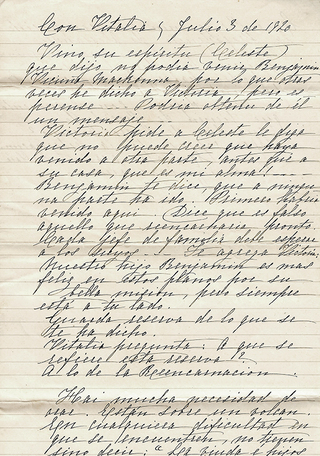 Con Vitalia, Julio 3 de 1920
Vino, su espíritu (Celeste)
que dijo no podía venir Benjamin
Vicuña Mackenna, por lo que otras
veces he dicho a Victoria, pero es
perense ... Podría obtener de él
un mensaje
Victoria pide a Celeste le diga
que no puede creer que haya
venido a otra parte, antes que a
su casa, que es mi alma! ...
Benjamin te dice, que a ningu
na parte ha ido. Primero habría
venido aquí. Dice que es falso
aquello que reencarnará pronto.
Cada jefe de familia debe esperar
a los suyos... Te agrega Victoria:
Nuestro hijo Benjamin es mas
feliz en estos planos por su
bella misión, pero siempre
esta a tu lado.
Guarda reserva de lo que se
te ha dicho.
Vitalia pregunta: A que se
refiere esta reserva?
A lo de la Reencarnacion.
Hai mucha necesidad de
orar. Están sobre un volcan.
En cualquiera dificultad en
que se encuentren, no tienen
sino decir: "Ser viuda e hijos